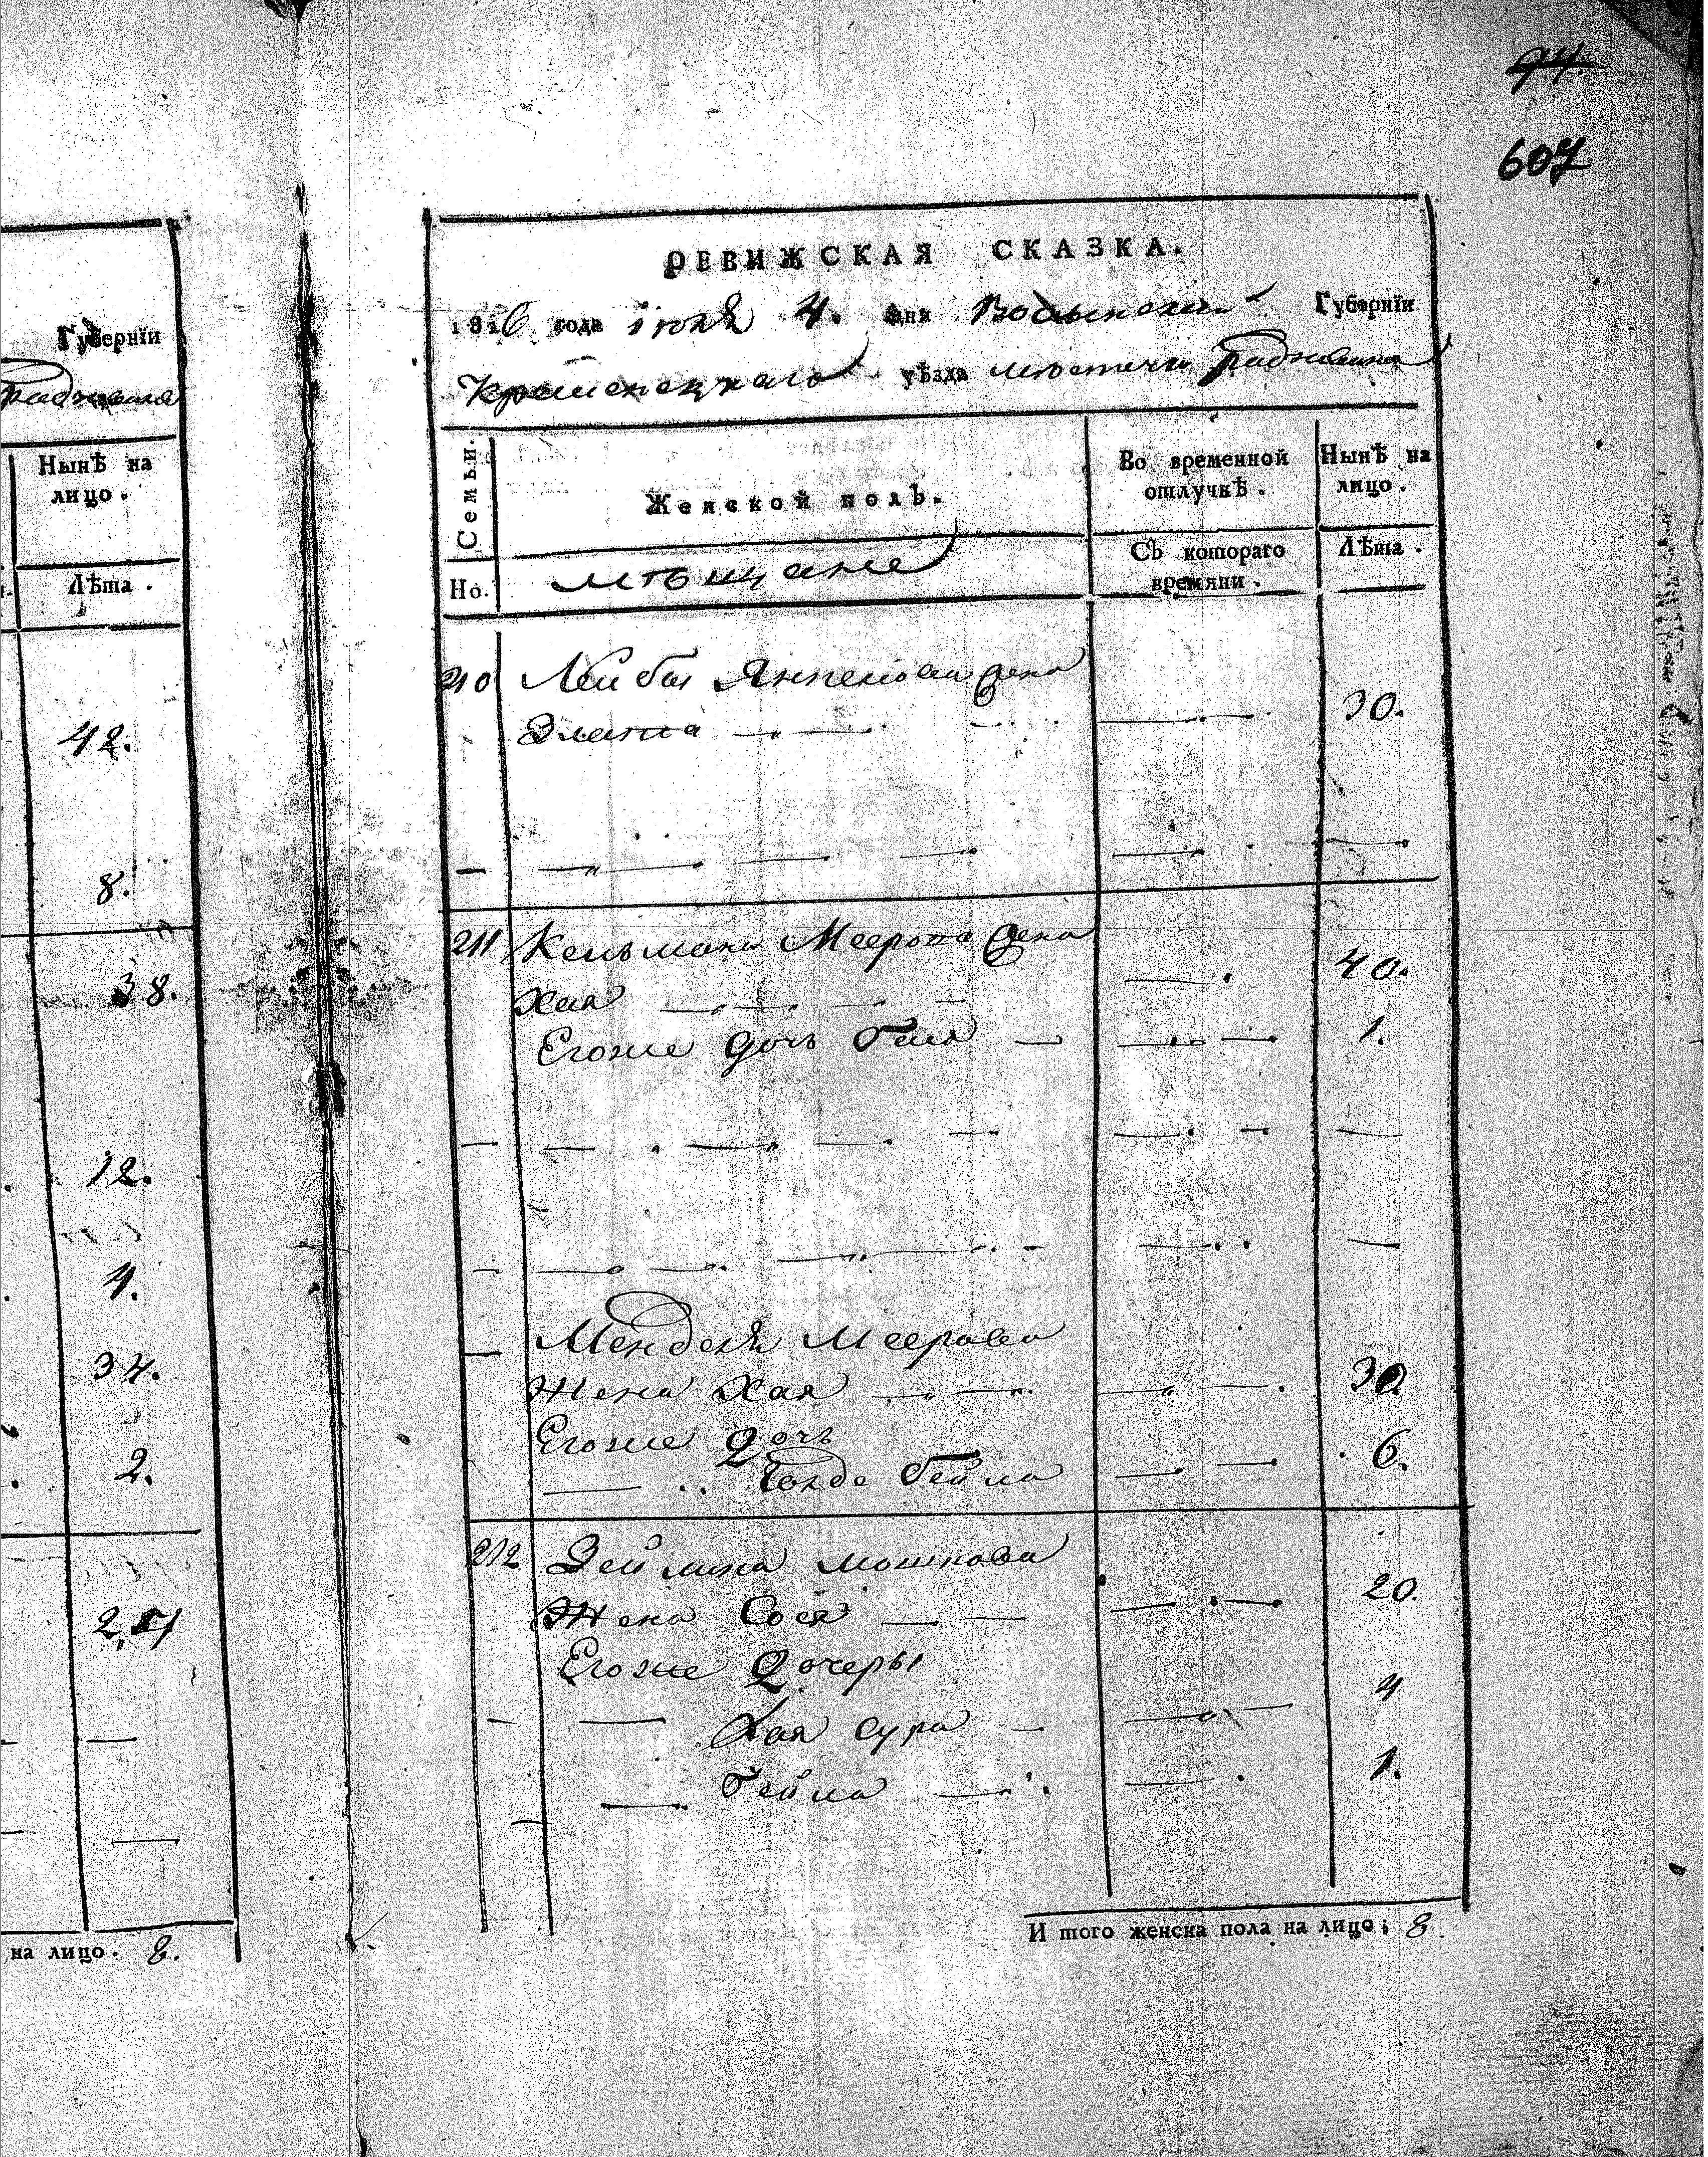 94.
607
Губернїи
Радзивила
Нынѣ на
лицо.
Лѣта.
42.
8.
38.
12.
4.
34.
2.
на лицо. 8.
РЕВИЖСКАЯ СКАЗКА.
1816 года июля 4. дня Волынской Губернїи
Кременецкаго уѣзда местечка Радзивила
Семьи.
Женской полъ.
Во временной
отлучкѣ.
Нынѣ на
лицо.
Но.
мѣщане
Съ котораго
времяни.
Лѣта.
210 Лейбы Янкелова жена
Злата 30.
211 Кельмана Меерова жена
Хая 40.
Егоже дочь Бейля 1.
Менделя Меерова
жена Хая 30
Егоже дочь
Гольде Бейла 6.
212 Зеймана Мошкова
Жена Сося 20.
Егоже дочеры
Хая Сура 4
Бейла 1.
И того женска пола на лицо; 8.